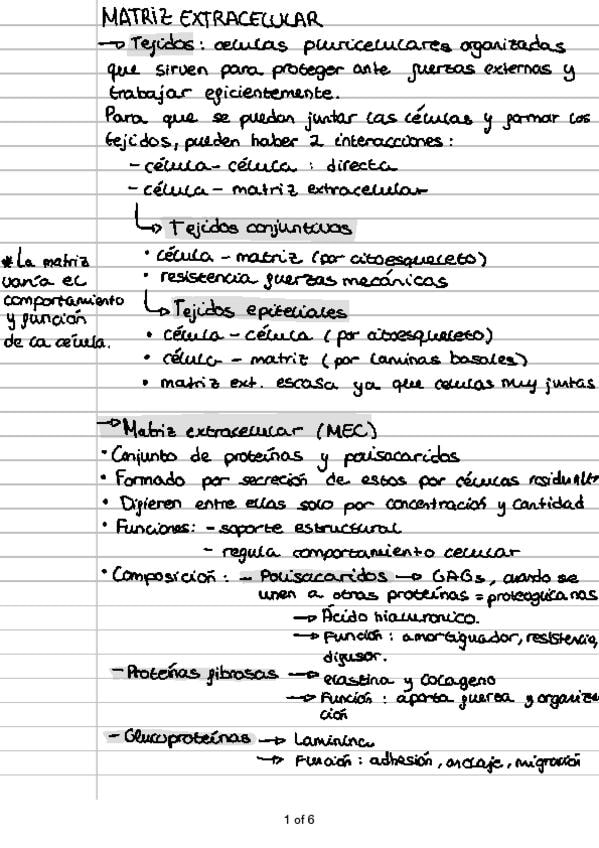 MATRIZ EXTRACELULAR
→ Tejidos: celulas pluricelulares organizadas
que sirven para proteger ante fuerzas externas y
trabajar eficientemente.
Para que se puedan juntar las células y formar los
tejidos, pueden haber 2 interacciones:
- célula - célula : directa
- célula - matriz extracelular
↳ Tejidos conjuntivos
• célula - matriz (por citoesqueleto)
• resistencia fuerzas mecánicas
* La matriz
varía el
comportamiento
y función
de la célula.
↳ Tejidos epiteliales
• célula - célula (por citoesqueleto)
• célula - matriz (por laminas basales)
• matriz ext. escasa ya que celulas muy juntas
→ Matriz extracelular (MEC)
• Conjunto de proteínas y polisacaridos
• Formado por secreción de estos por células
• Difieren entre ellas solo por concentración y cantidad
• Funciones: - soporte estructural
- regula comportamiento celular
• Composición: - Polisacaridos → GAGs, cuando se
unen a otras proteínas = proteoglicanos
→ Ácido hialuronico.
→ Función: amortiguador, resistencia,
difusor.
- Proteínas fibrosas → elastina y colageno
→ Función: aporta fuerza y organiza
ción
- Glucoproteínas → Laminina
→ Función: adhesión, anclaje, migración
1 of 6